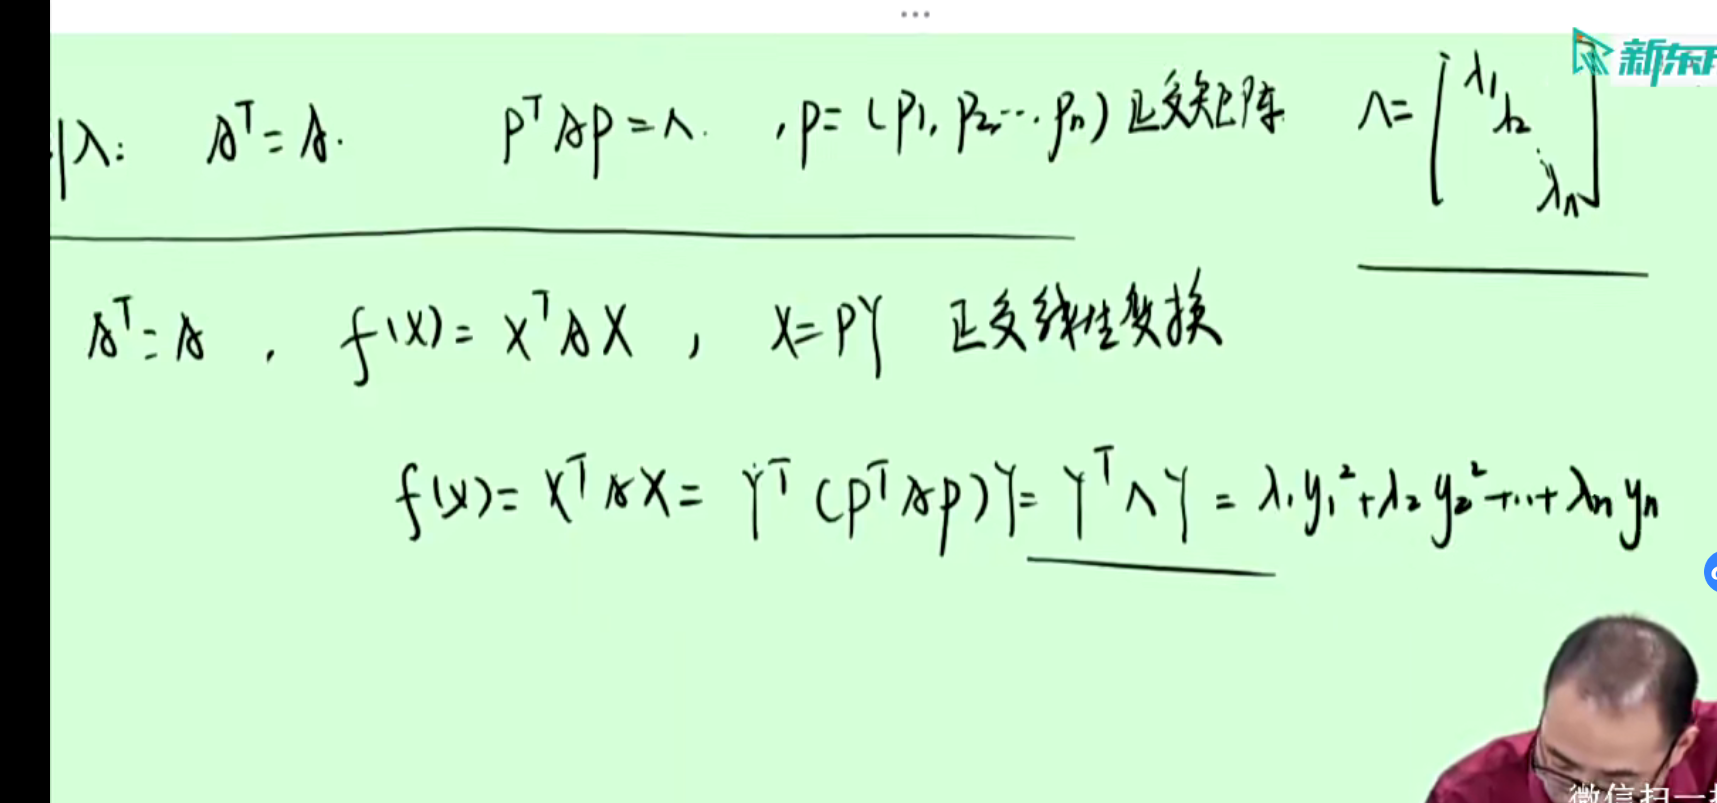 ...
新东
引入: Aᵀ = A. PᵀAP = Λ. , P = (P₁, P₂, ... Pₙ) 正交矩阵 Λ = [λ₁ λ₂ ⋱ λₙ]
Aᵀ = A , f(X) = XᵀAX , X = PY 正交线性变换
f(X) = XᵀAX = Yᵀ(PᵀAP)Y = YᵀΛY = λ₁y₁² + λ₂y₂² + ... + λₙyₙ
微信扫一